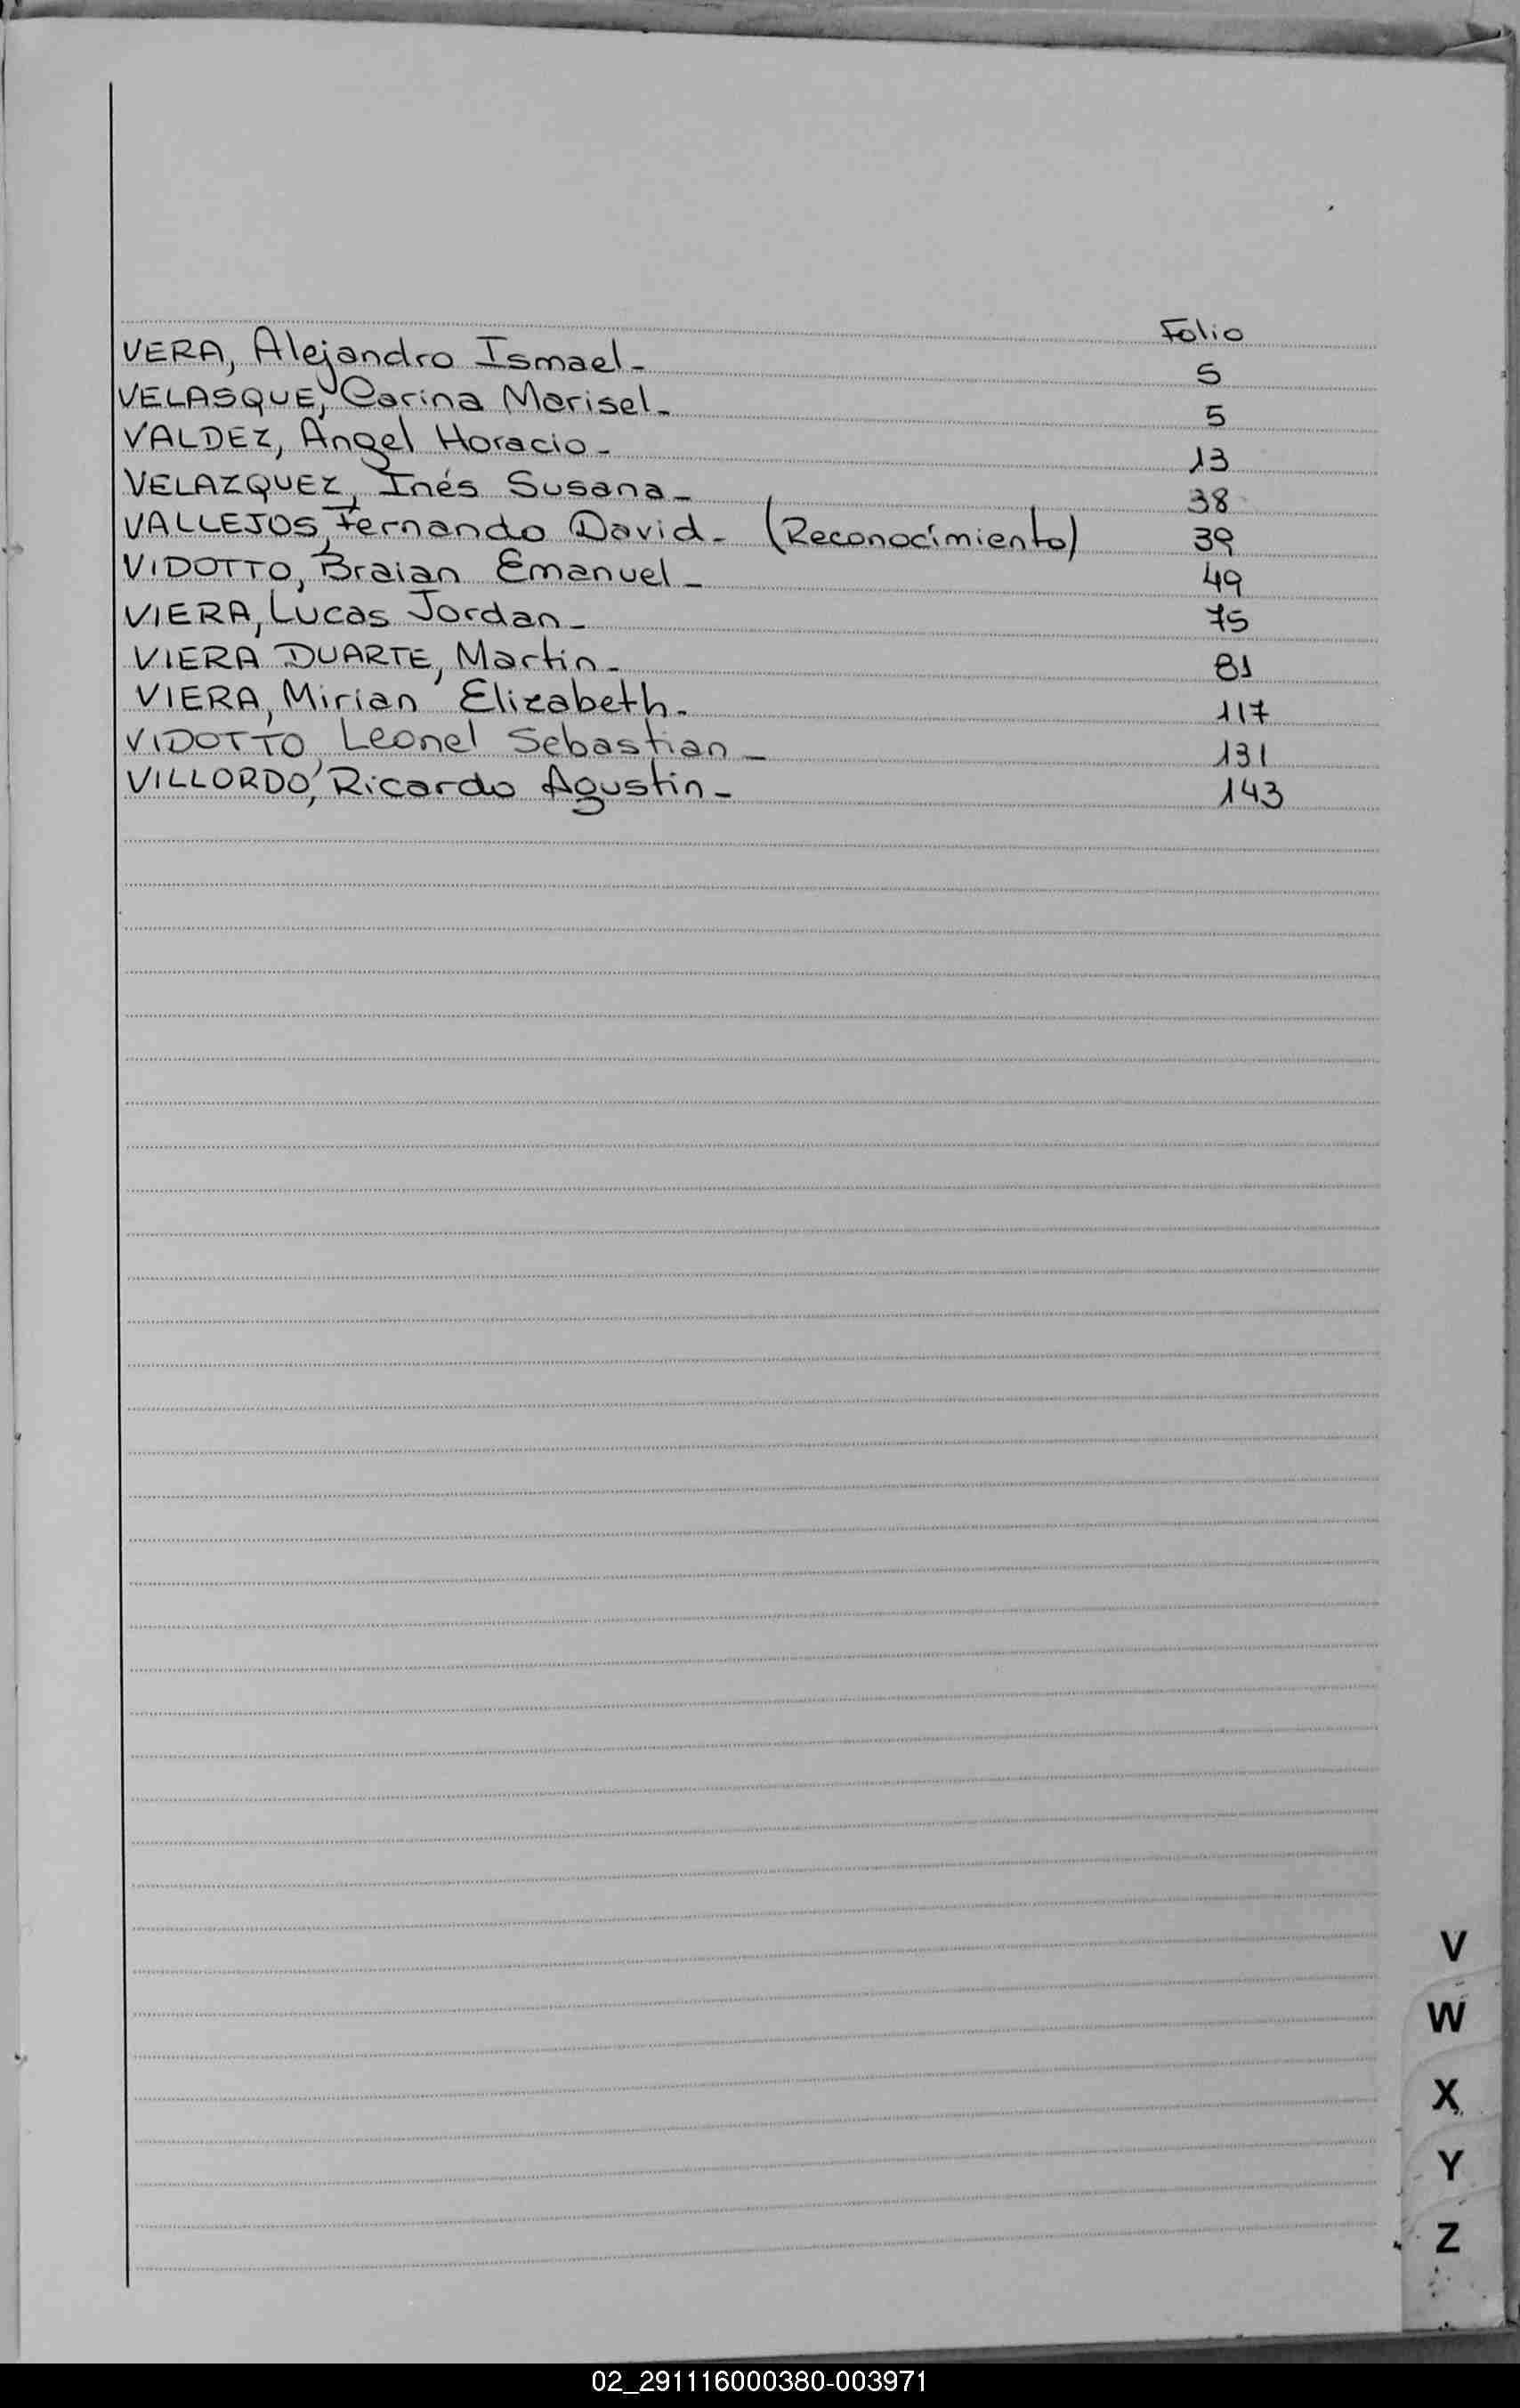 Folio
VERA, Alejandro Ismael- 5
VELASQUE, Carina Marisel- 5
VALDEZ, Angel Horacio- 13
VELAZQUEZ, Inés Susana- 38
VALLEJOS, Fernando David- (Reconocimiento) 39
VIDOTTO, Braian Emanuel- 49
VIERA, Lucas Jordan- 75
VIERA DUARTE, Martin- 81
VIERA, Mirian Elizabeth- 117
VIDOTTO, Leonel Sebastian- 131
VILLORDO, Ricardo Agustin- 143
V
W
X
Y
Z
02_291116000380-003971